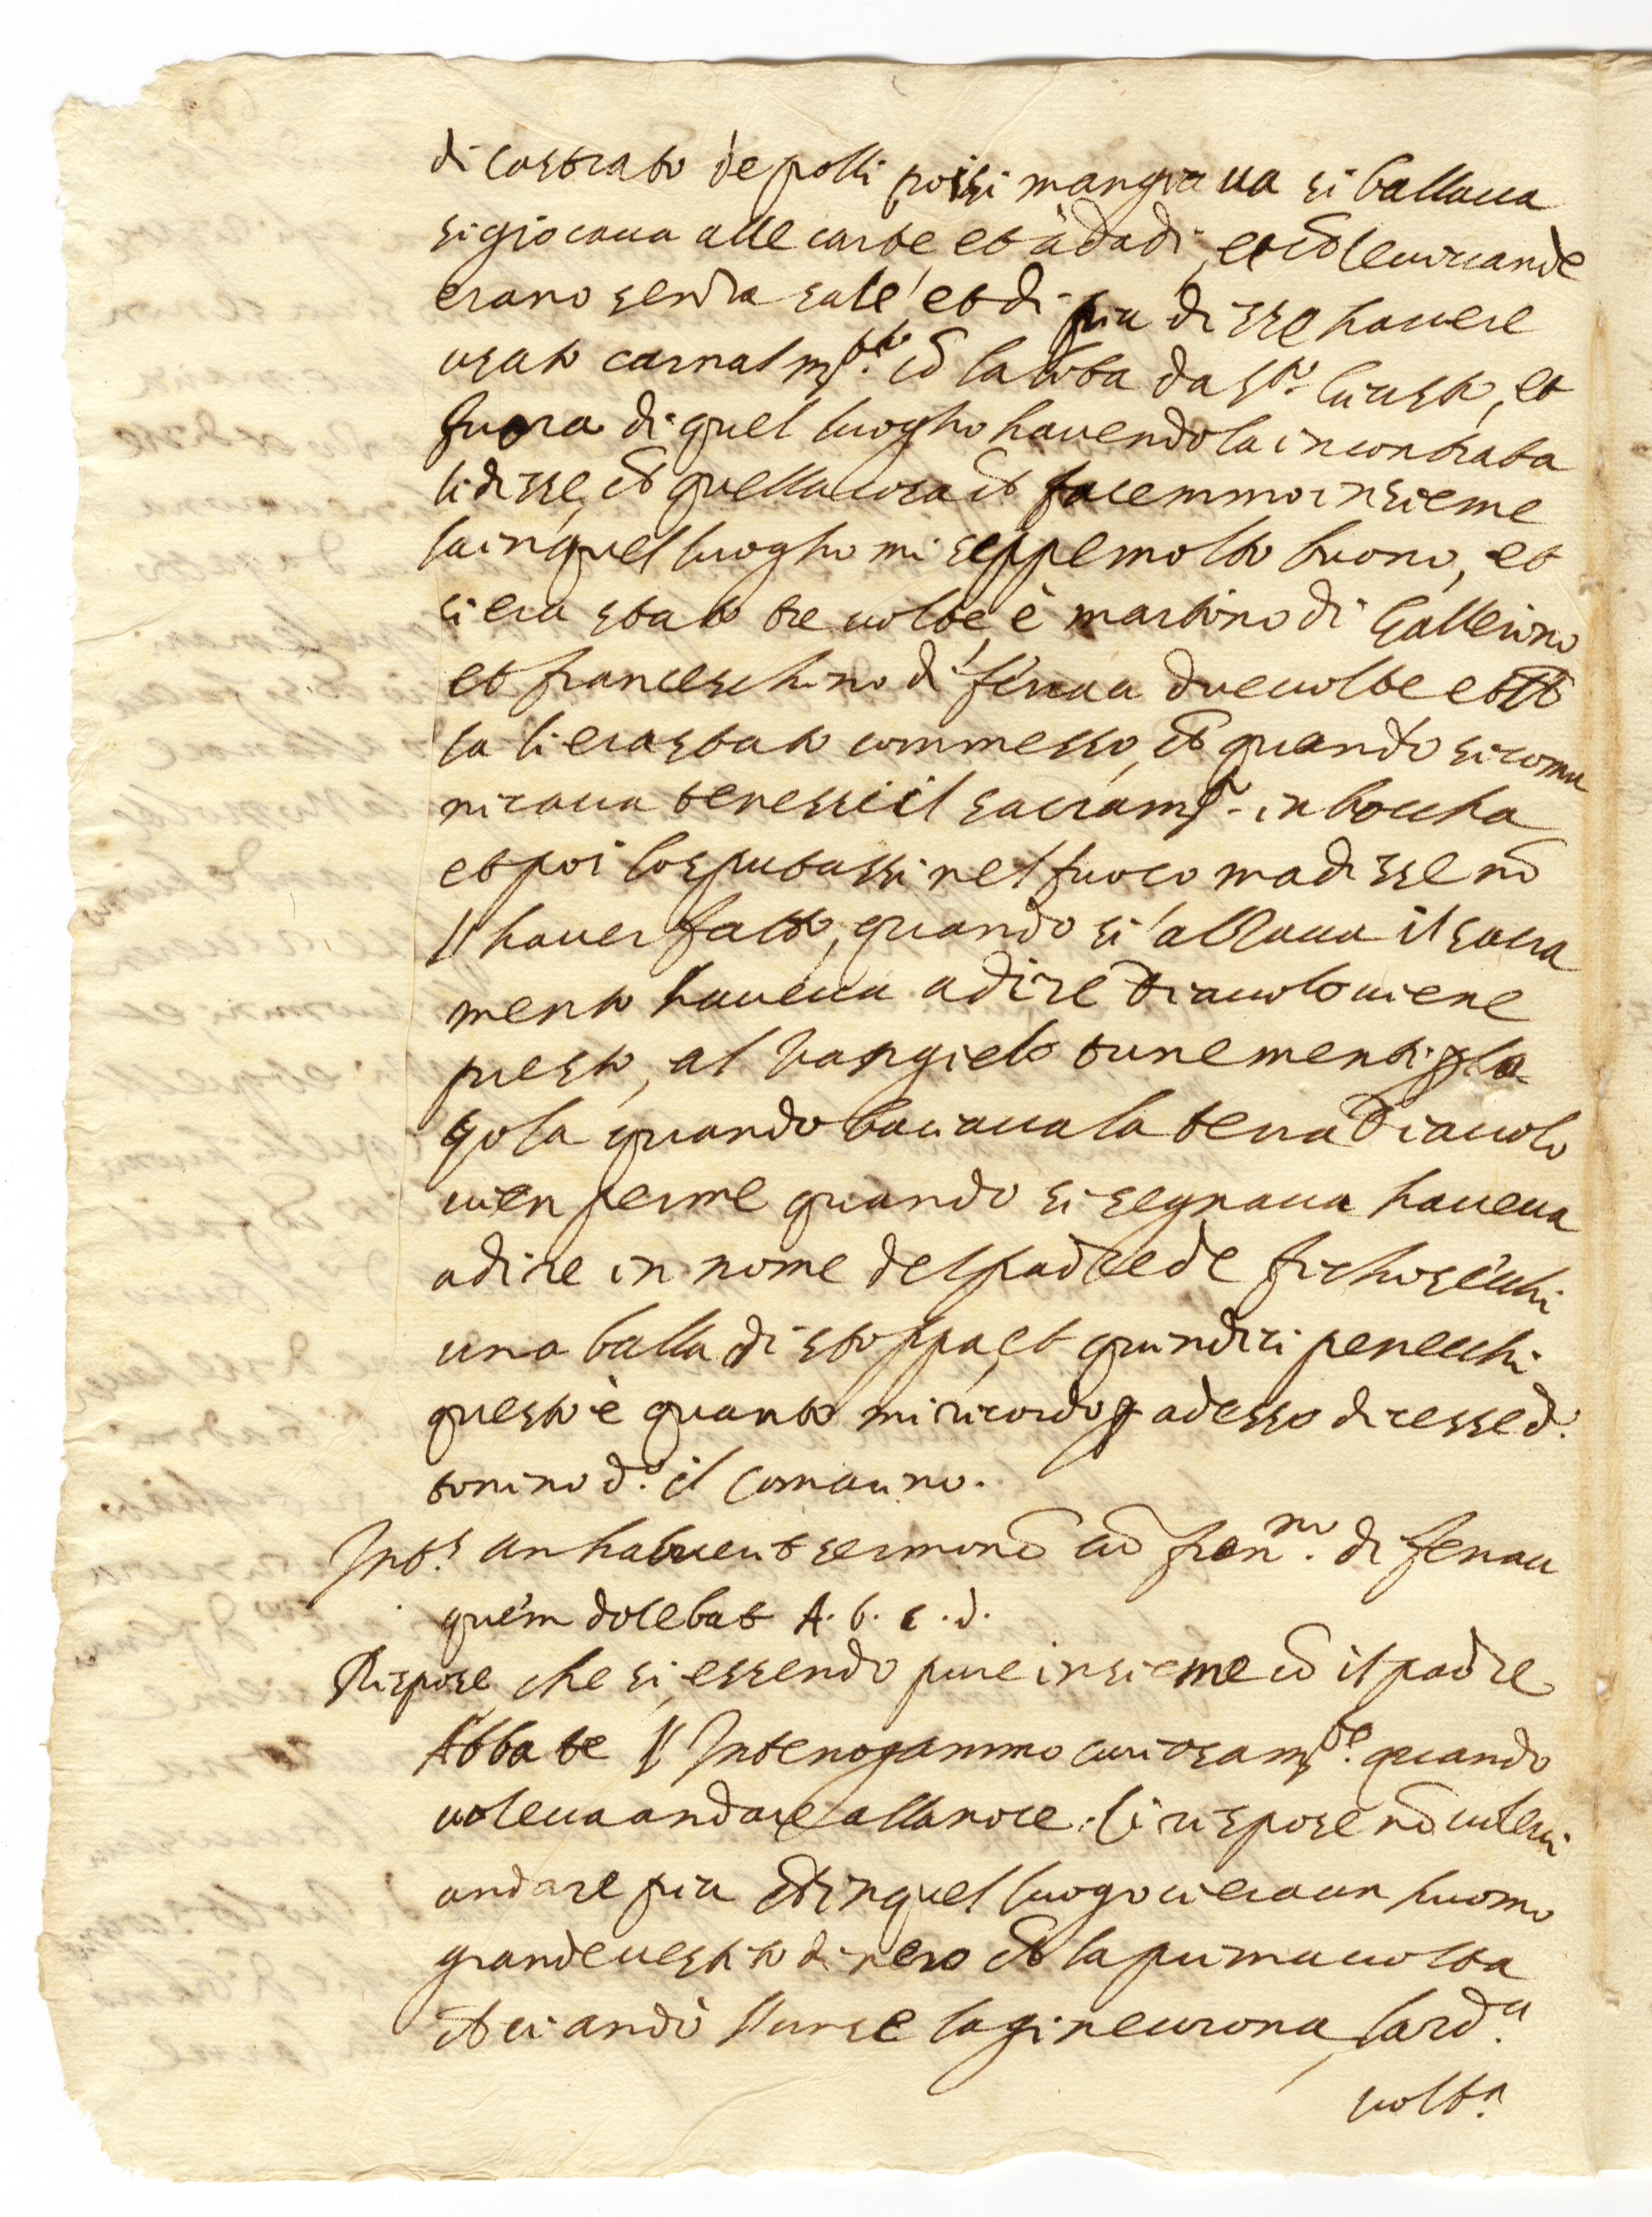 di castrato de polli, poi si mangiaua si ballaua
si giocaua alle carte et à dadi, et ch̃ le uiuande
erano senza sale, et di piu disse hauere
usato carnalm.te cõ la da S.to, et
fuora di quel luogho hauendola incontrata
li disse, ch̃ quella cosa ch̃ facemmo insieme
la in quel luogho mi seppe molto buono, et
ci era stato tre uolte, è martino di Gallerino
et franceschino di ferraa due uolte et ch̃
la li era stato commesso, ch̃ quando si comu
nicaua tenessi il sacram.to in boccha
et poi lo sputassi nel fuoco ma disse nõ
l'hauer fatto, quando si alzaua il sacra
mento haueua a dire Diauolo uiene
presto, al Vangielo tu ne menti p la
gola quando baciaua la terra Diauolo
uien per me quando si segnaua haueua
a dire in nome del padre de fichi secchi
una balla di stoppa, et quindici penecchi
questo è quanto mi ricordo p adesso dicesse d.o
tonino d.o il Comanno.
Int.s an habuerit sermonẽ cũ fran.no di ferraa
quem docebat A. b. c. d.
Rispose, che si, essendo pure insieme cõ il padre
Abbate l'Interrogammo curiosam.te quando
uoleua andare alla noce. Ci rispose nõ uolerui
andare piu ch̃ in quel luogo ui era un huomo
grande uestito di nero ch̃ la prima uolta
ch̃ ui andò l'unse la gineurona, la 2.da
uolt.a